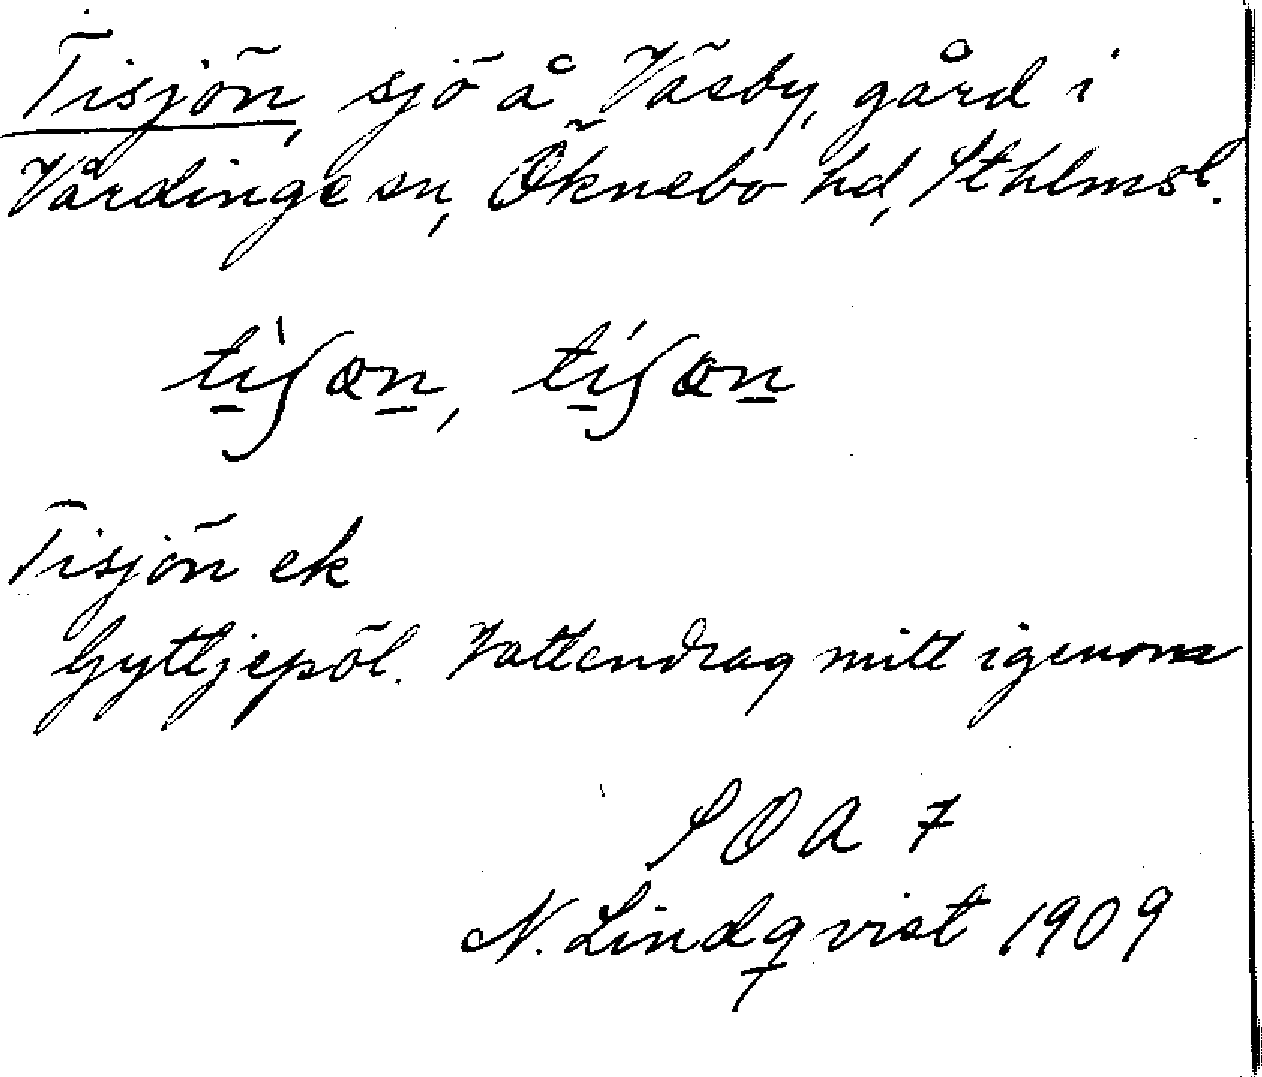 Tisjön, sjö å Väsby, gård i
Vårdinge sn, Öknebo hd, Sthlmsl.
ti̠ʃøn̠, ti̠ʃøn̠
Tisjön ek
Gyttjepöl. Vattendrag mitt igenom
SOA 7
N. Lindqvist 1909